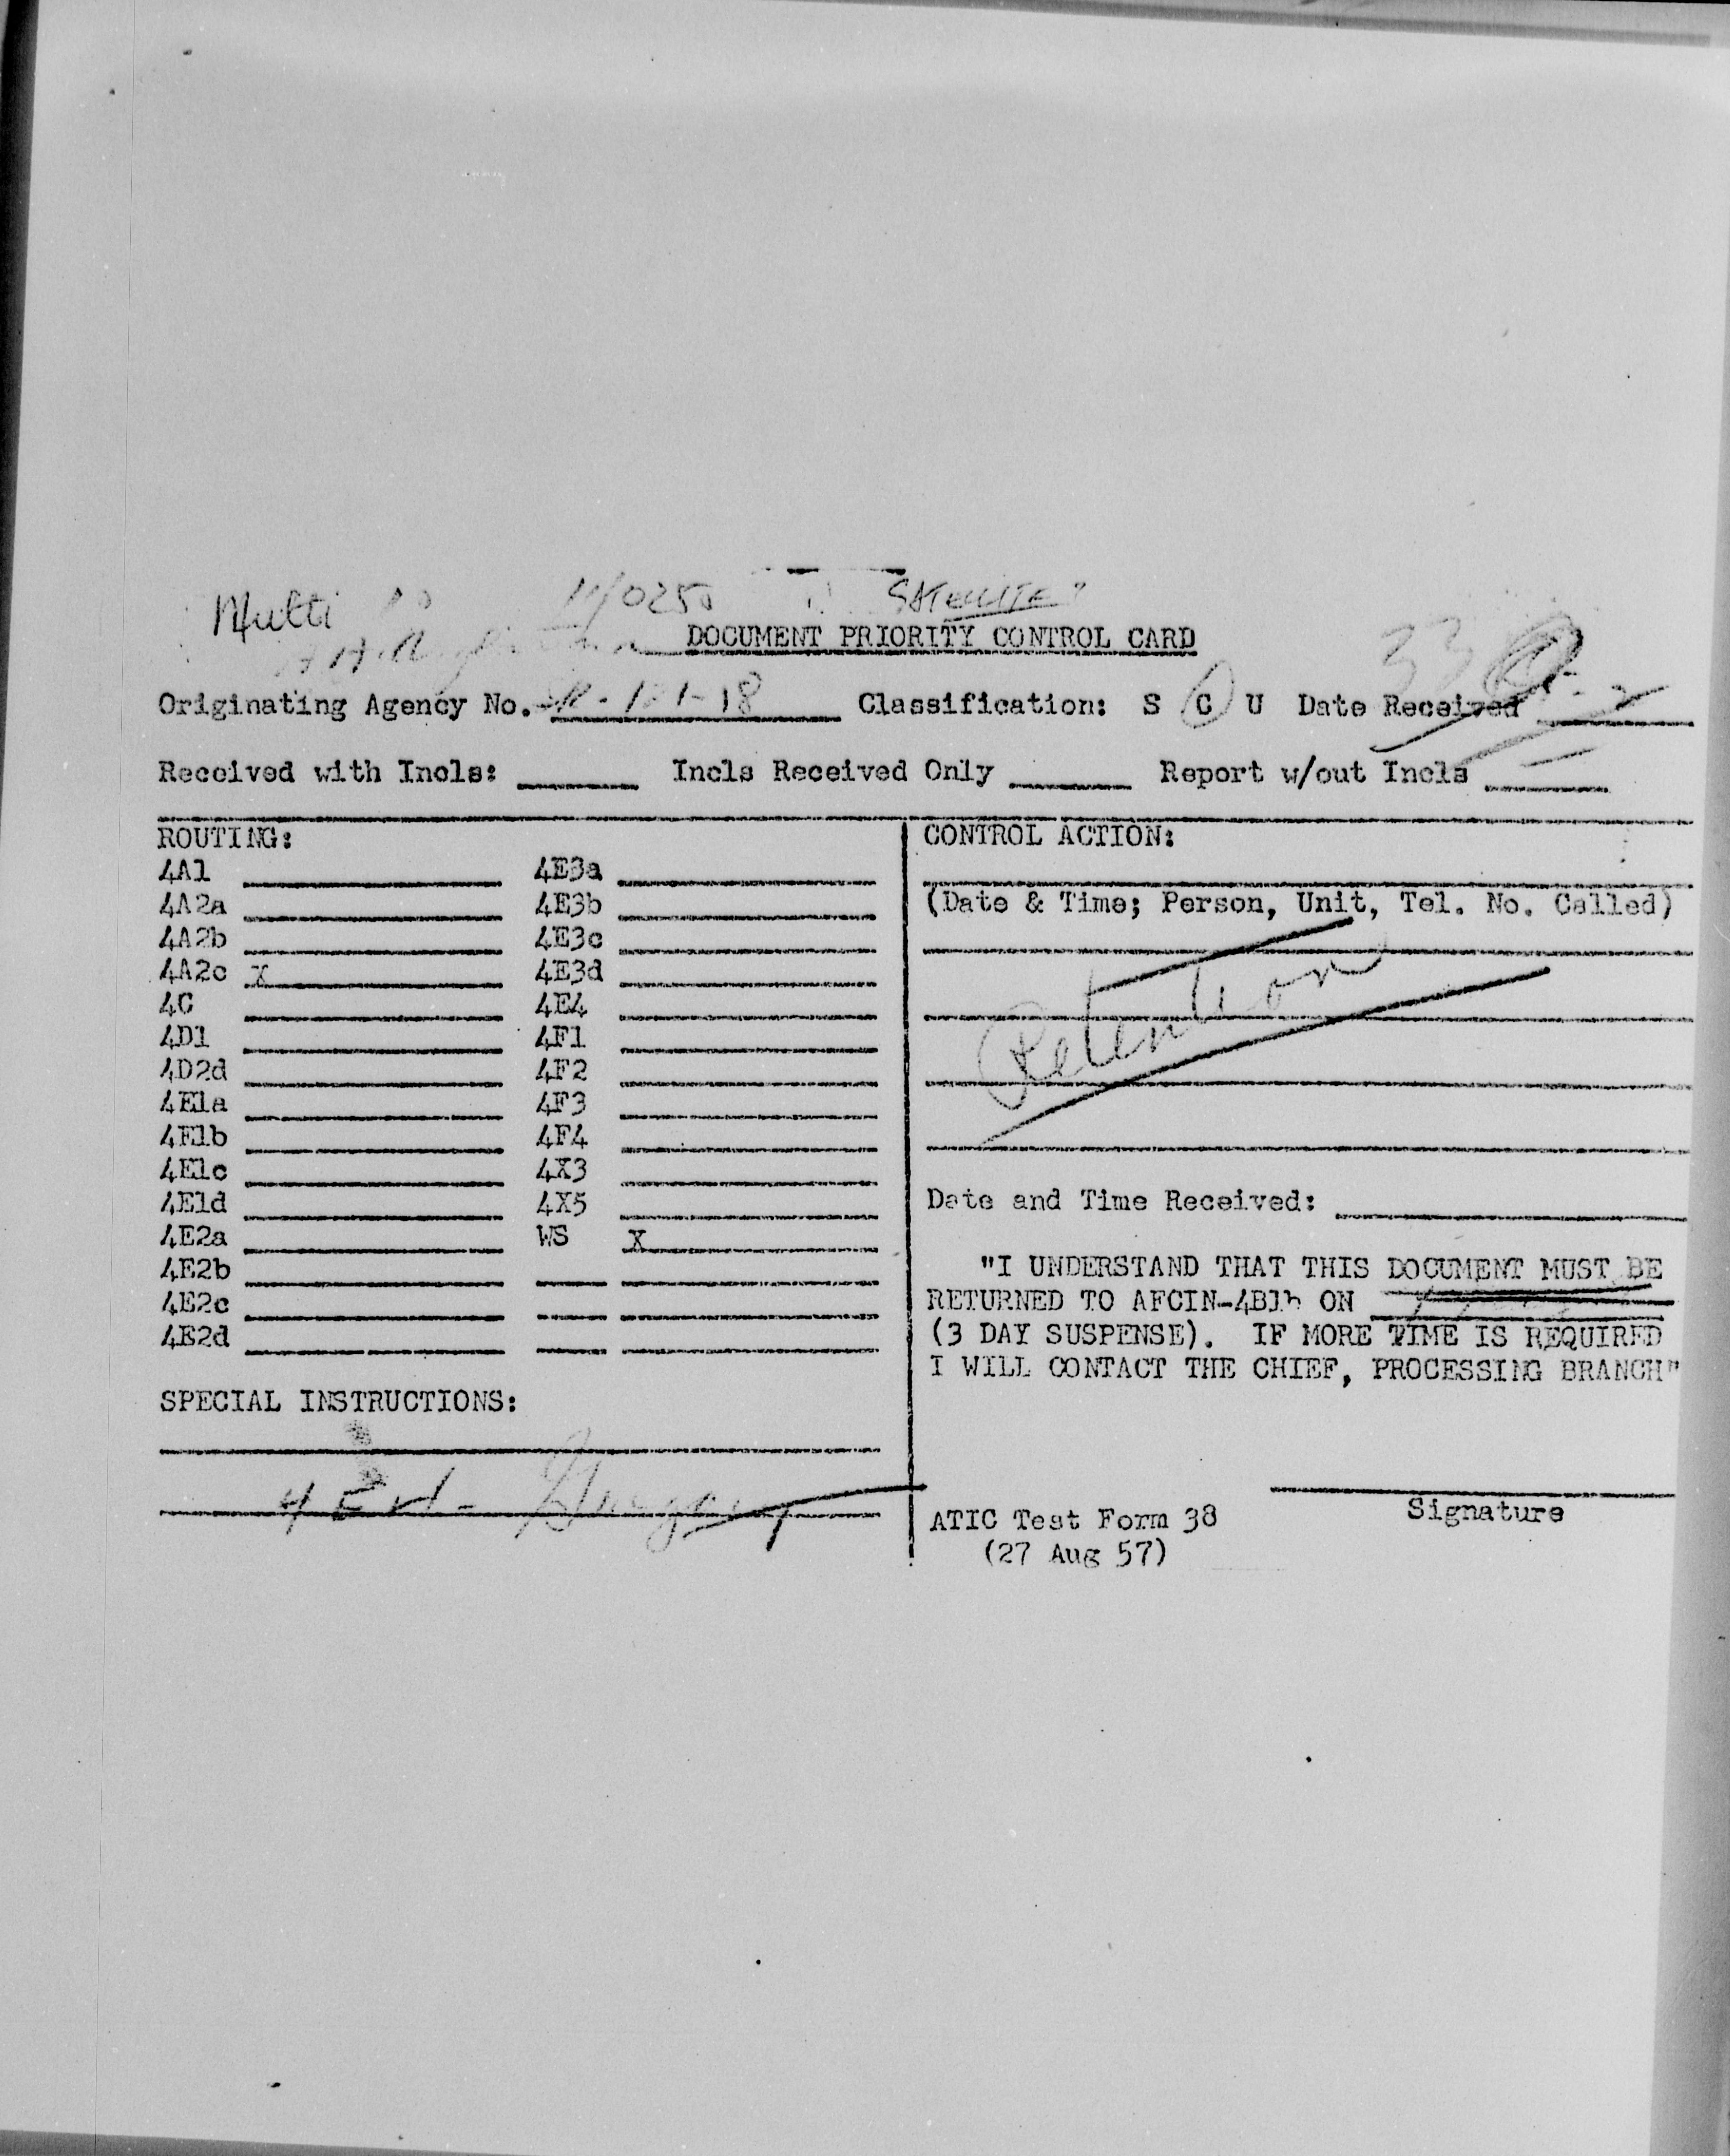 Multi
SATELLITE?
DOCUMENT PRIORITY CONTROL CARD
Originating Agency No. Classification: S C U Date Received
Received with Incls: Incls Received Only Report w/out Incls
ROUTING:
4A1 4E3a
4A2a 4E3b
4A2b 4E3c
4A2c X 4E3d
4C 4E4
4D1 4F1
4D2d 4F2
4E1a 4F3
4E1b 4F4
4E1c 4X3
4E1d 4X5
4E2a WS X
4E2b
4E2c
4E2d
SPECIAL INSTRUCTIONS:
CONTROL ACTION:
(Date & Time; Person, Unit, Tel. No. Called)
Retention
Date and Time Received:
"I UNDERSTAND THAT THIS DOCUMENT MUST BE
RETURNED TO AFCIN-4B1b ON
(3 DAY SUSPENSE). IF MORE TIME IS REQUIRED
I WILL CONTACT THE CHIEF, PROCESSING BRANCH"
Signature
ATIC Test Form 38
(27 Aug 57)